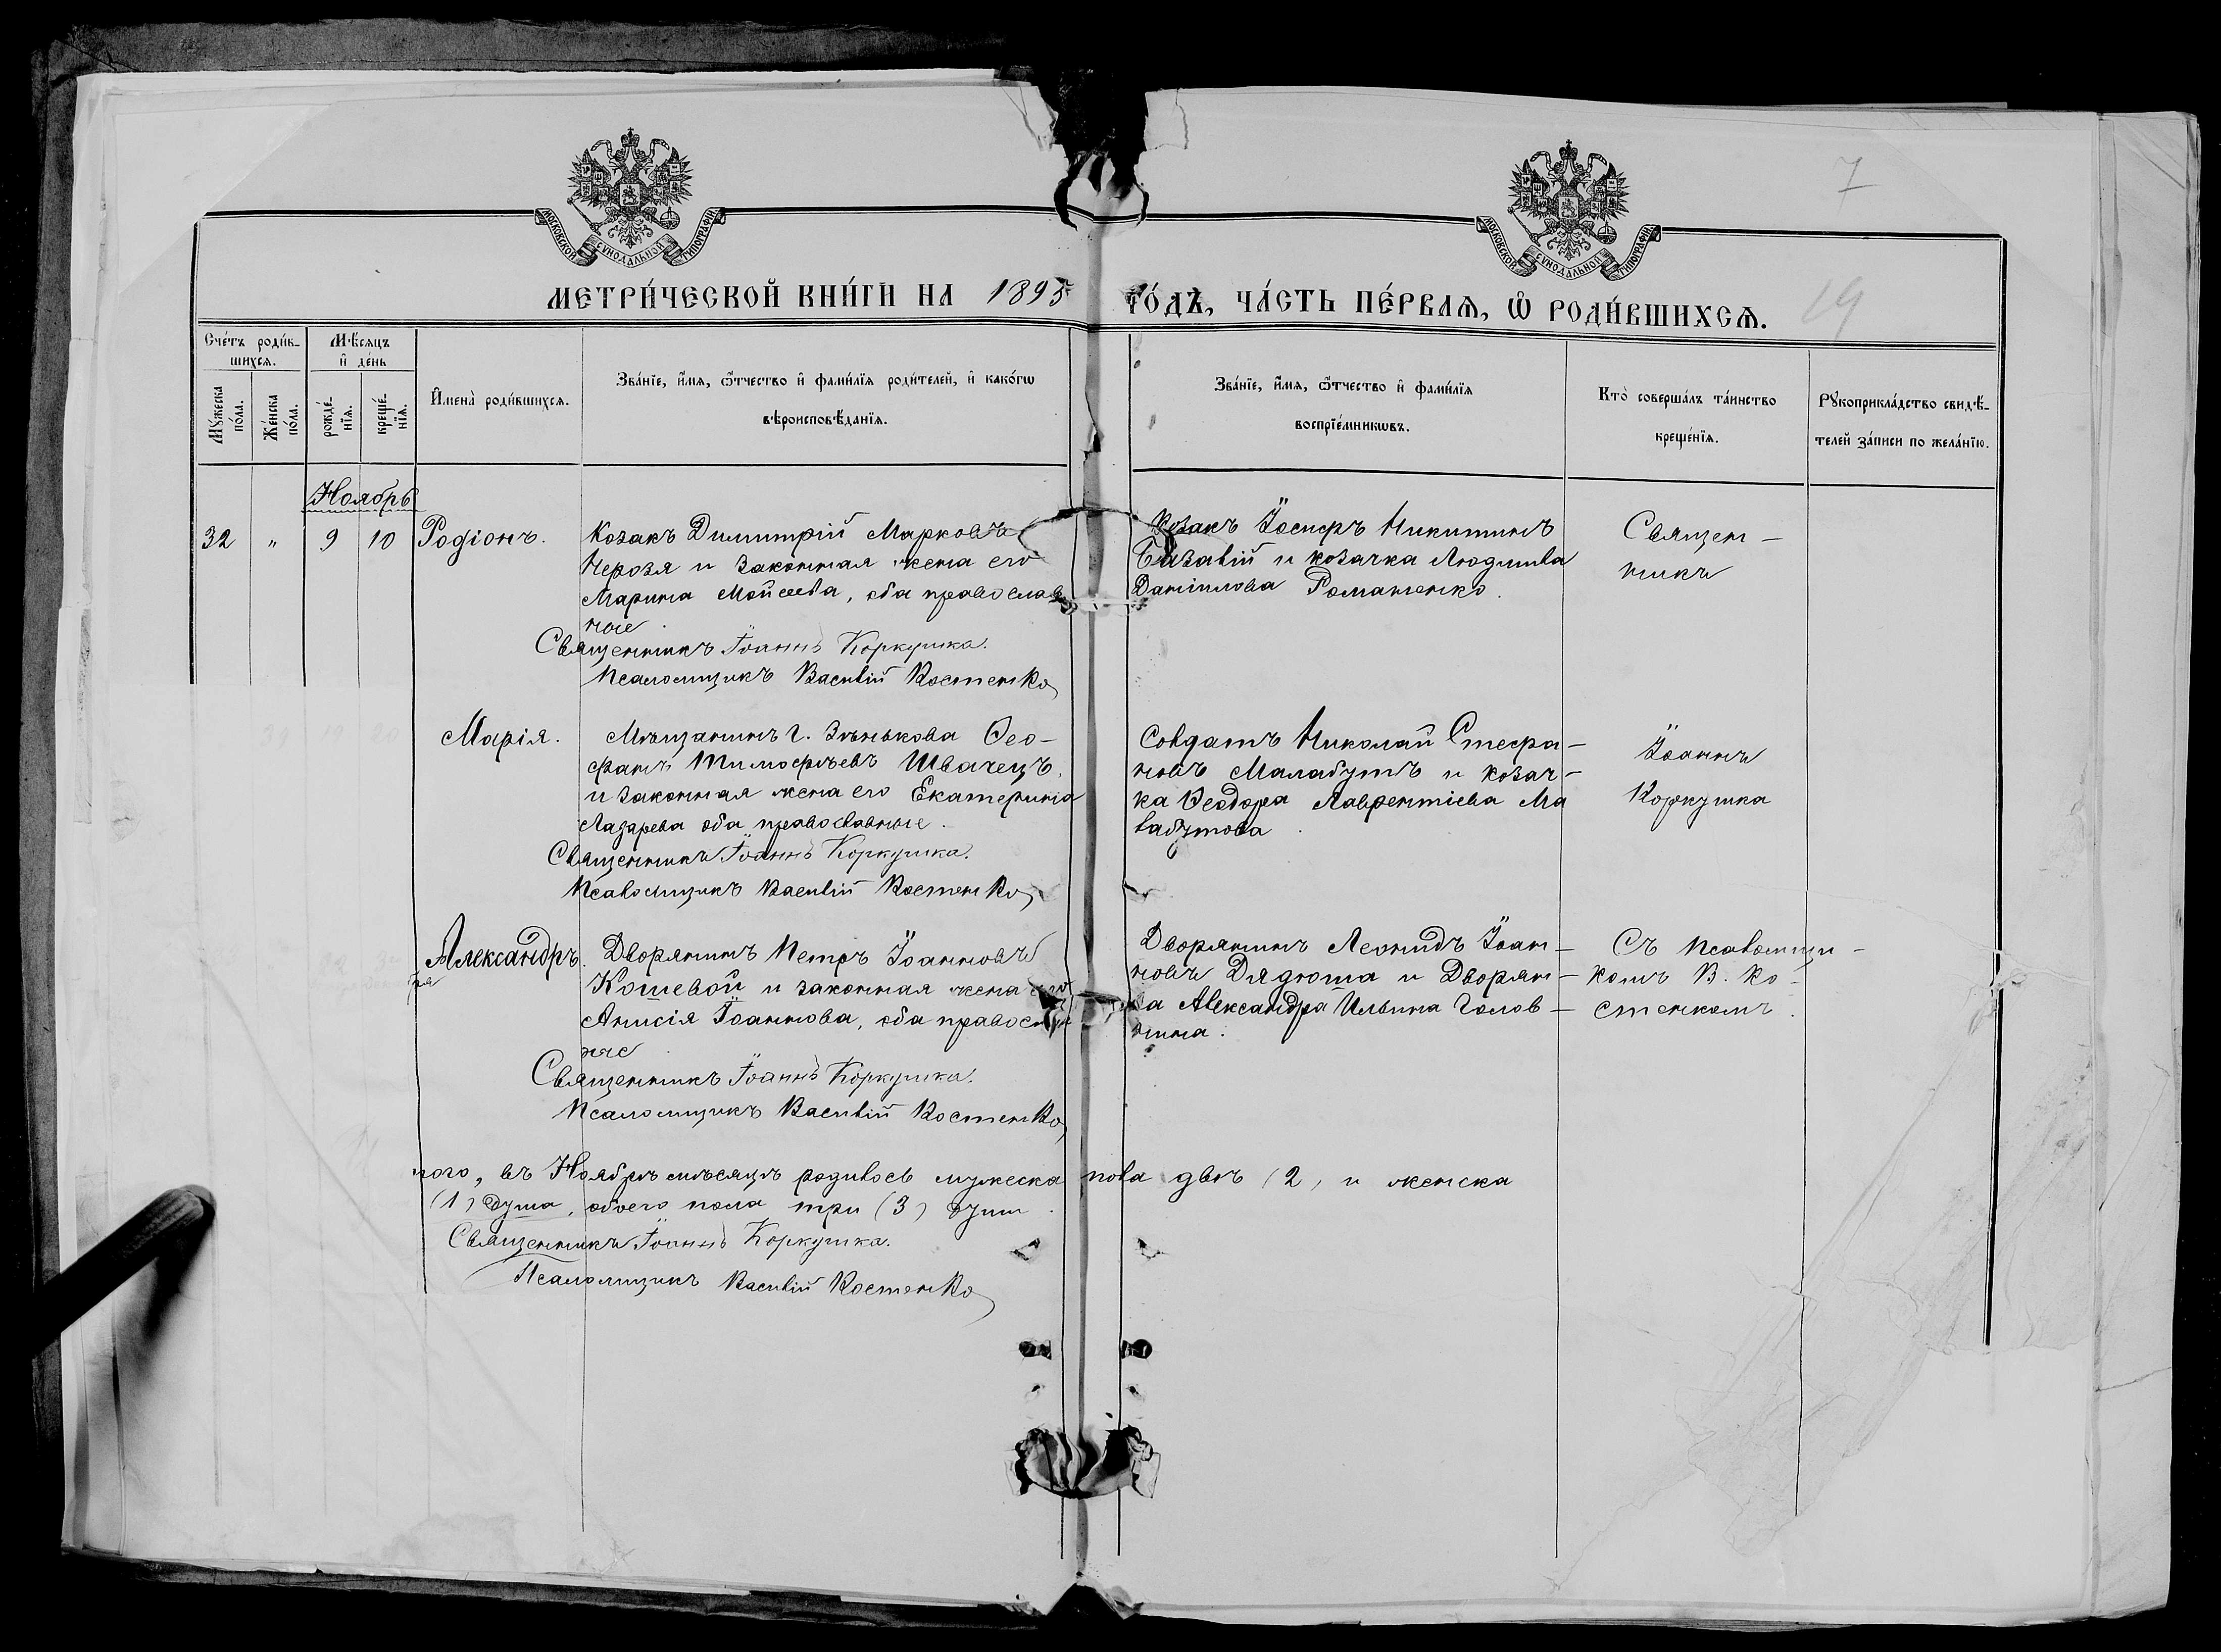 7
19
МОСКОВСКОЙ СѴНОДАЛЬНОЙ ТИПОГРАФІИ
МОСКОВСКОЙ СѴНОДАЛЬНОЙ ТИПОГРАФІИ
МЕТРИ́ЧЕСКОЙ КНИ́ГИ НА 1895 ГО́ДЪ, ЧА́СТЬ ПЕ́РВАѦ, Ѡ҆ РОДИ́ВШИХСѦ.
Сче́тъ роди́в-
шихсѧ.
Мꙋ́жеска
по́ла.
Же́нска
по́ла.
Мѣ́сѧцъ
и҆ де́нь
рожде́-
нїѧ.
креще́-
нїѧ.
И҆мена̀ роди́вшихсѧ.
Зва́нїе, и҆́мѧ, ѻ҆́тчество и҆ фами́лїѧ роди́телей, и҆ како́гѡ
вѣроисповѣ́данїѧ.
Зва́нїе, и҆́мѧ, ѻ҆́тчество и҆ фами́лїѧ
воспрїе́мникѡвъ.
Кто̀ соверша́лъ та́инство
креще́нїѧ.
Рꙋкоприкла́дство свидѣ́-
телей за́писи по жела́нїю.
Ноябрь
32 „ 9 10 Родіонъ.
Козакъ Димитрій Марковъ
Черозя и законная жена его
Марина Мойсеева, оба православ
ные
Священникъ Іоаннъ Коркушка.
Псаломщикъ Василій Костенко
Козакъ Іосифъ Никитинъ
Бизавій и козачка Людмила
Даніилова Романенко.
Священ-
никъ
Марія.
Мѣщанинъ г. Зѣнькова Фео-
фанъ Тимофѣевъ Швачецъ,
и законная жена его Екатерина
Лазарева оба православные.
Священникъ Іоаннъ Коркушка.
Псаломщикъ Василій Костенко
Солдатъ Николай Стефа-
новъ Малабутъ и козач-
ка Феодора Лаврентіева Ма
лабутова
Іоаннъ
Коркушка
Александръ.
Дворянинъ Петръ Іоанновъ
Кошевой и законная жена его
Анисія Іоаннова, оба правосл
ные
Священникъ Іоаннъ Коркушка.
Псаломщикъ Василій Костенко
Дворянинъ Леонидъ Іоан-
новъ Дядюша и Дворян-
ка Александра Ильина Голов-
нина.
Съ псаломщи-
комъ В. Ко-
стенкомъ.
того, въ Ноябрѣ мѣсяцѣ родилось мужеска пола двѣ (2) и женска
(1) душа, обоего пола три (3) душ
Священникъ Іоаннъ Коркушка.
Псаломщикъ Василій Костенко